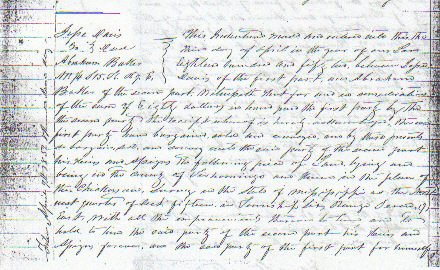 Hope Davis
To } Deed
Abraham Baker
This Indenture made and entered into this the
day of April in the year of our Lord
Eighteen hundred and fifty two, between
Davis of the first part, and Abraham
Baker of the second part, Witnesseth that for and in consideration
of the sum of Eighty dollars in hand paid the first party by the
the second party the receipt whereof is hereby the
first party have bargained sold and conveyed, and by these presents
do bargain sell and convey unto the said party of the second part
his heirs and assigns The following piece of Land lying and
being in the County of and known in the plan of
the Chickasaw Survey in the State of Mississippi as the
west quarter of Sect fifteen in Township six Range Seven
East With all the To have and To
hold to him the said party of the second part his Heirs and
Assigns forever, and the said party of the first part for himself